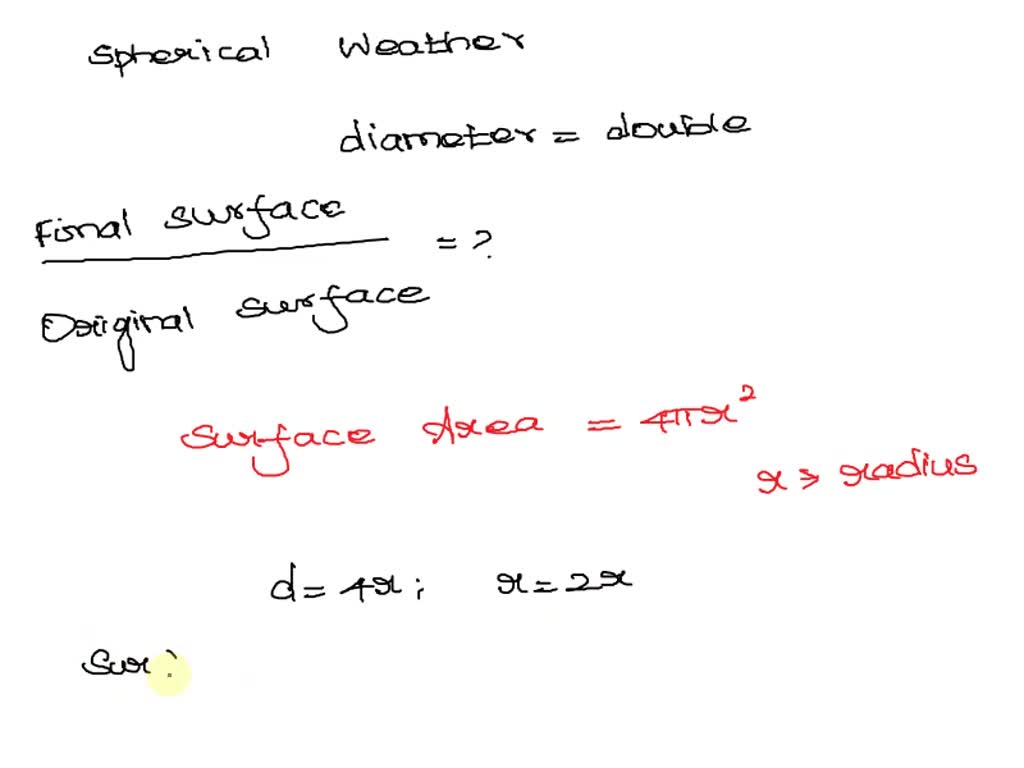 Spherical Weather
diameter = double
Final surface
= ?
Original surface
Surface Area = 4πr²
r → radius
d = 4r; r = 2r
Sur